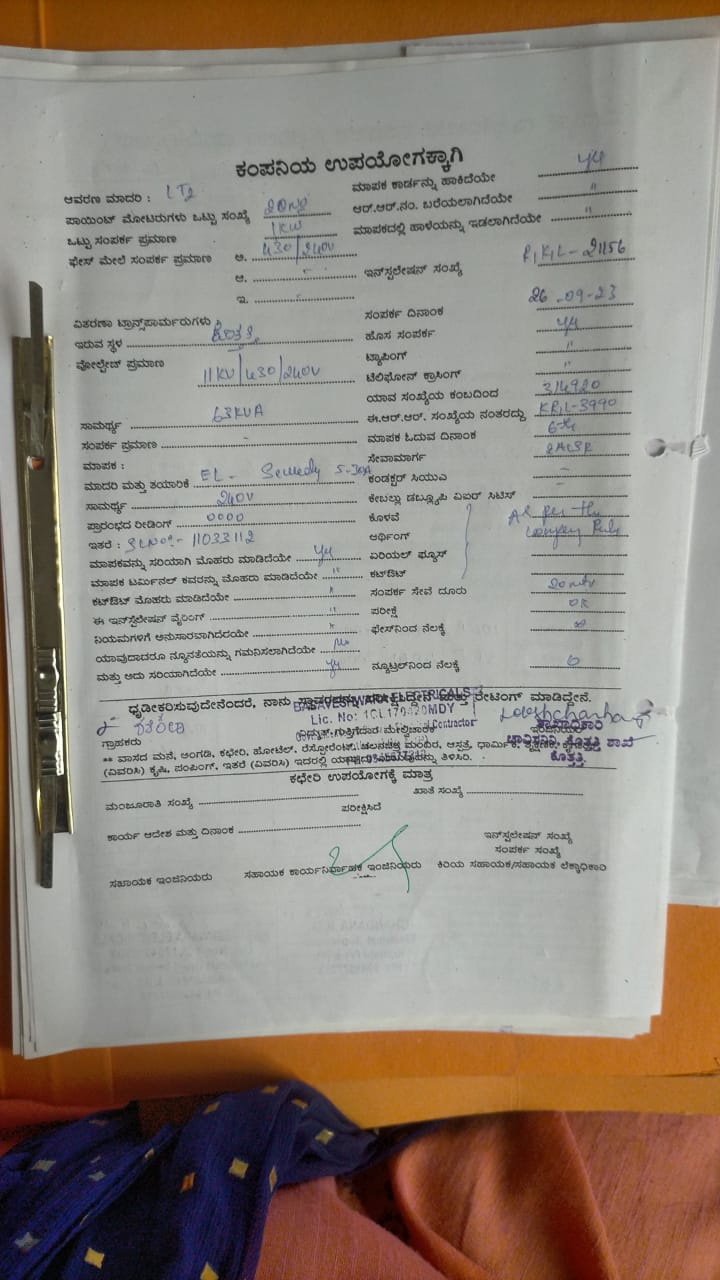 ಕಂಪನಿಯ ಉಪಯೋಗಕ್ಕಾಗಿ
ಆವರಣ ಮಾದರಿ : LT2
ಪಾಯಿಂಟ್ ಮೋಟರುಗಳು ಒಟ್ಟು ಸಂಖ್ಯೆ
ಒಟ್ಟು ಸಂಪರ್ಕ ಪ್ರಮಾಣ 1KW
ಫೇಸ್ ಮೇಲೆ ಸಂಪರ್ಕ ಪ್ರಮಾಣ ಅ. 430/240V
ಆ.
ಇ.
ವಿತರಣಾ ಟ್ರಾನ್ಸ್‌ಫಾರ್ಮರುಗಳು
ಇರುವ ಸ್ಥಳ
ವೋಲ್ಟೇಜ್ ಪ್ರಮಾಣ 11KV/430/240V
ಸಾಮರ್ಥ್ಯ 63KVA
ಸಂಪರ್ಕ ಪ್ರಮಾಣ -
ಮಾಪಕ :
ಮಾದರಿ ಮತ್ತು ತಯಾರಿಕೆ EL-
ಸಾಮರ್ಥ್ಯ 240V
ಪ್ರಾರಂಭದ ರೀಡಿಂಗ್ 0000
ಇತರೆ : SLNo:- 11033112
ಮಾಪಕವನ್ನು ಸರಿಯಾಗಿ ಮೊಹರು ಮಾಡಿದೆಯೇ
ಮಾಪಕ ಟರ್ಮಿನಲ್ ಕವರನ್ನು ಮೊಹರು ಮಾಡಿದೆಯೇ "
ಕಟ್‌ಔಟ್ ಮೊಹರು ಮಾಡಿದೆಯೇ
ಈ ಇನ್‌ಸ್ಟಲೇಷನ್ ವೈರಿಂಗ್ "
ನಿಯಮಗಳಿಗೆ ಅನುಸಾರವಾಗಿದೆಯೇ
ಯಾವುದಾದರೂ ನ್ಯೂನತೆಯನ್ನು ಗಮನಿಸಲಾಗಿದೆಯೇ No
ಮತ್ತು ಅದು ಸರಿಯಾಗಿದೆಯೇ
ಮಾಪಕ ಕಾರ್ಡನ್ನು ಹಾಕಿದೆಯೇ
ಆರ್.ಆರ್.ನಂ. ಬರೆಯಲಾಗಿದೆಯೇ "
ಮಾಪಕದಲ್ಲಿ ಹಾಳೆಯನ್ನು ಇಡಲಾಗಿದೆಯೇ "
ಇನ್‌ಸ್ಟಲೇಷನ್ ಸಂಖ್ಯೆ
ಸಂಪರ್ಕ ದಿನಾಂಕ 26-09-23
ಹೊಸ ಸಂಪರ್ಕ
ಟ್ಯಾಪಿಂಗ್ "
ಟೆಲಿಫೋನ್ ಕ್ರಾಸಿಂಗ್ "
ಯಾವ ಸಂಖ್ಯೆಯ ಕಂಬದಿಂದ 314920
ಈ.ಆರ್.ಆರ್. ಸಂಖ್ಯೆಯ ನಂತರದ್ದು KRIL-3990
ಮಾಪಕ ಓದುವ ದಿನಾಂಕ 6th
ಸೇವಾಮಾರ್ಗ 2ACSR
ಕಂಡಕ್ಟರ್ ಸಿಯುಎ -
ಕೇಬಲ್ಲು ಡಬ್ಲ್ಯೂಪಿ ಏಐರ್ ಸಿಟಿಸ್ -
ಕೊಳವೆ As per the
ಅರ್ಥಿಂಗ್ Company Rule
ಏರಿಯಲ್ ಫ್ಯೂಸ್
ಕಟ್‌ಔಟ್
ಸಂಪರ್ಕ ಸೇವೆ ದೂರು
ಪರೀಕ್ಷೆ OK
ಫೇಸ್‌ನಿಂದ ನೆಲಕ್ಕೆ
ನ್ಯೂಟ್ರಲ್‌ನಿಂದ ನೆಲಕ್ಕೆ
ಧೃಡೀಕರಿಸುವುದೇನೆಂದರೆ, ನಾನು ಮತ್ತು ರೇಟಿಂಗ್ ಮಾಡಿದ್ದೇನೆ.
BASAVESHWARA ELECTRICALS
Contractor
ವಿದ್ಯುತ್ ಗುತ್ತಿಗೆದಾರ ಮೇಲ್ವಿಚಾರಕ
ಶಾಖಾಧಿಕಾರಿ
ಗ್ರಾಹಕರು
ಕೊತ್ತತ್ತಿ ಶಾಖೆ
ಕೊತ್ತತ್ತಿ.
** ವಾಸದ ಮನೆ, ಅಂಗಡಿ, ಕಛೇರಿ, ಹೋಟೆಲ್, ರೆಸ್ಟೋರೆಂಟ್, ಚಲನಚಿತ್ರ ಮಂದಿರ, ಆಸ್ಪತ್ರೆ, ಧಾರ್ಮಿಕ,
(ವಿವರಿಸಿ) ಕೃಷಿ, ಪಂಪಿಂಗ್, ಇತರೆ (ವಿವರಿಸಿ) ಇದರಲ್ಲಿ ತಿಳಿಸಿರಿ.
ಕಛೇರಿ ಉಪಯೋಗಕ್ಕೆ ಮಾತ್ರ
ಮಂಜೂರಾತಿ ಸಂಖ್ಯೆ ಖಾತೆ ಸಂಖ್ಯೆ
ಪರೀಕ್ಷಿಸಿದೆ
ಕಾರ್ಯ ಆದೇಶ ಮತ್ತು ದಿನಾಂಕ
ಇನ್‌ಸ್ಟಲೇಷನ್ ಸಂಖ್ಯೆ
ಸಂಪರ್ಕ ಸಂಖ್ಯೆ
ಸಹಾಯಕ ಇಂಜಿನಿಯರು ಸಹಾಯಕ ಕಾರ್ಯನಿರ್ವಾಹಕ ಇಂಜಿನಿಯರು ಕಿರಿಯ ಸಹಾಯಕ/ಸಹಾಯಕ ಲೆಕ್ಕಾಧಿಕಾರಿ